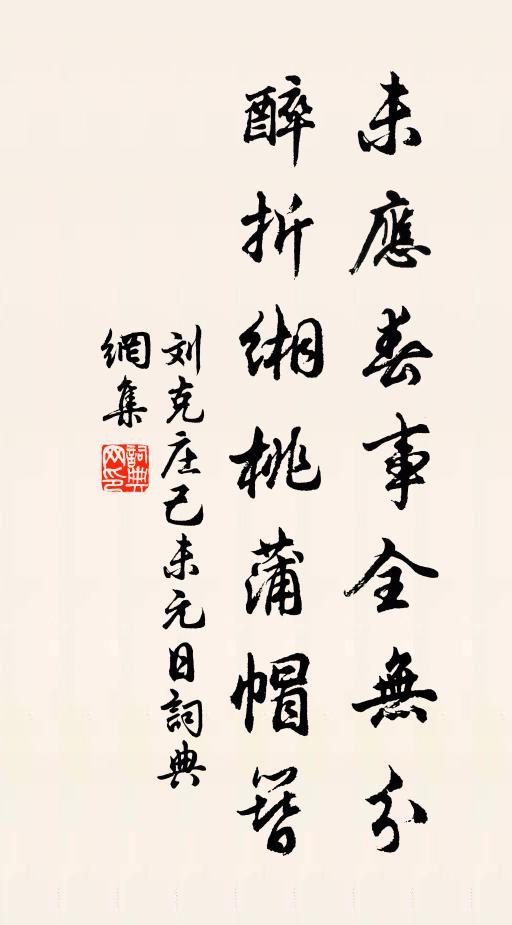 未應春事全無分
醉折緗桃蒲帽簪
刘克庄己未元日詞典
網集
詞典
网印